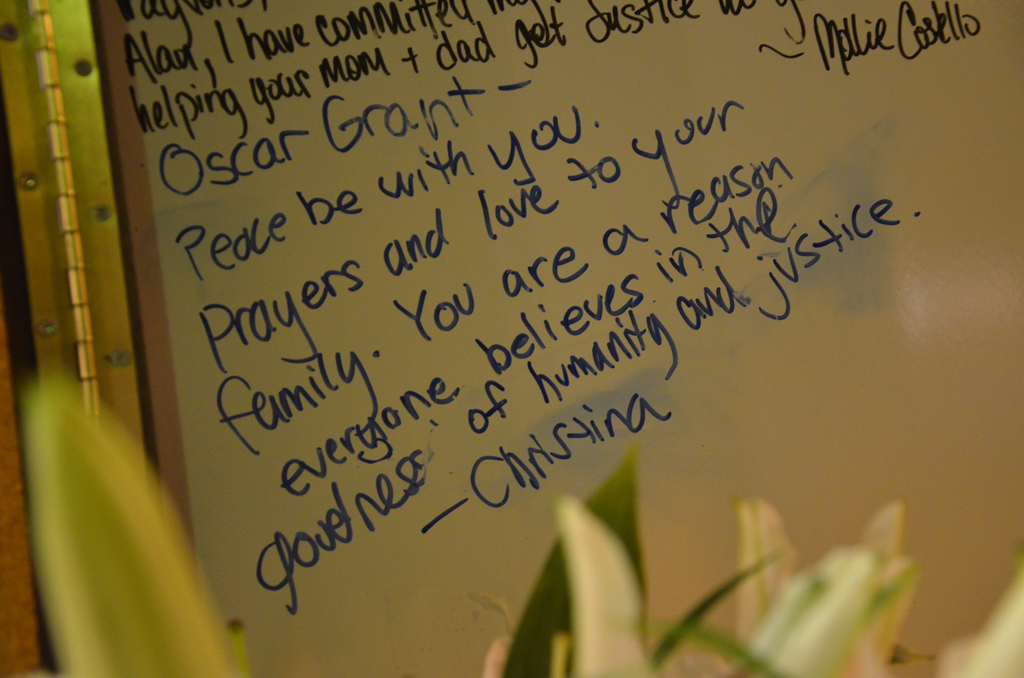 Alan, I have committed my
helping your mom + dad get Justice
~ Mollie Costello
Oscar Grant -
Peace be with you.
Prayers and love to your
family. You are a reason
everyone believes in the
goodness of humanity and justice.
- Christina